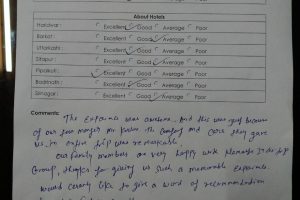 About Hotels
Haridwar : Excellent Good Average Poor
Barkot : Excellent Good Average Poor
Uttarkashi : Excellent Good Average Poor
Sitapur : Excellent Good Average Poor
Pipalkoti : Excellent Good Average Poor
Badrinath : Excellent Good Average Poor
Srinagar : Excellent Good Average Poor
Comments: The Experience was awesome. And this was just because
of our tour manager Mr. The Comfort and Care they gave
us. the entire trip was remarkable.
Our family members are very happy with
Group, thanks for giving us such a memorable Experience
would like to give a word of recommendation